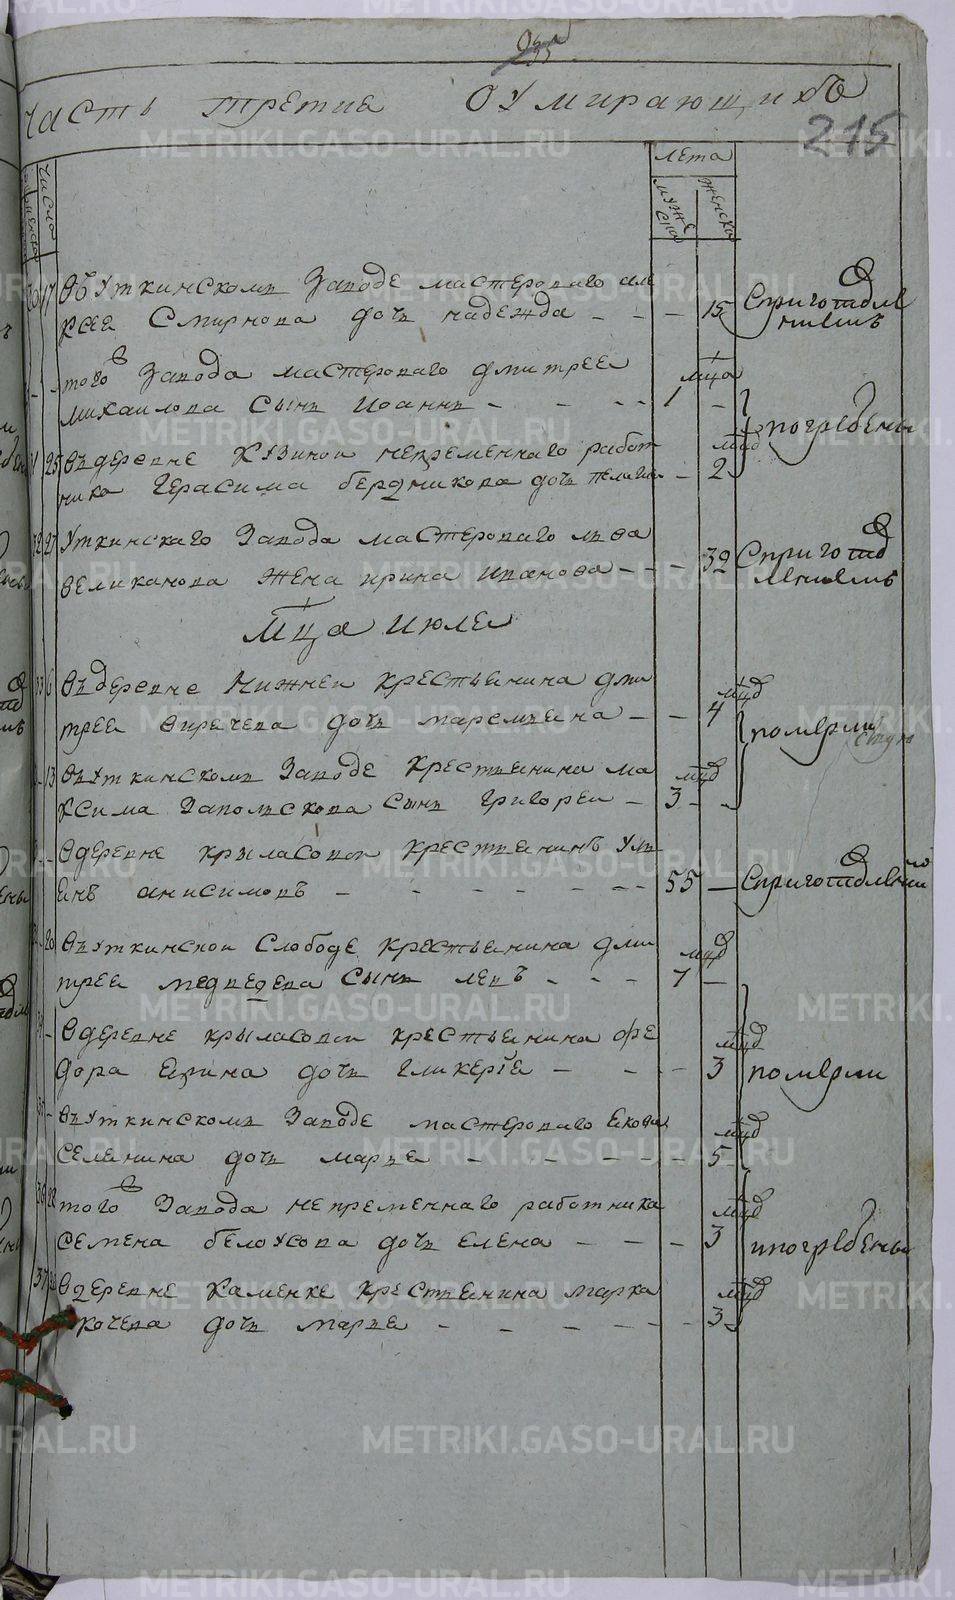 часть третиа О Умирающихъ
215
лета
число
мужеска
женска
17 Въ Уткинскомъ Заводе мастероваго але
ксея Смирнова дочь надежда - - - 15 Спригото
влениемъ
того Завода мастероваго дмитрея мца
михаилова Сынъ Иоаннъ - - - - 1 -
погребены
25 Въ деревне Кузинои непременнаго работ мцд
ника Герасима бердникова дочь - 2
32 27 Уткинскаго Завода мастероваго льва
великанова жена ирина иванова - - - 32 Спригото
влениемъ
Мца июля
33 6 Въ деревне Нижнеи крестьянина дми мцд
трея дочь маремьяна - - 4
померли
13 Въ Уткинскомъ Заводе Крестьянина ма мцд
ксима Запольскова Сынъ Григореи - 3 -
Вдеревне крыласовои крестьянинъ Уль
янъ анисимовъ - - - - - - 55 - Сприготовлением
20 Въ Уткинскои Слободе крестьянина дми мцд
трея медведева Сынъ левъ - - - 7 -
Вдеревне крыласовои крестьянина фе мцд
дора дочь гликерїя - - - 3
померли
Въ Уткинскомъ Заводе мастероваго Якова мцд
Семянина дочь марья - - - - - 5
36 22 того Завода непременнаго работника мцд
Семена белоусова дочь елена - - - - 3
ипогребены
37 Вдеревне Каменке крестьянина марка мцд
дочь марья - - - - - - 3
METRIKI.GASO-URAL.RU